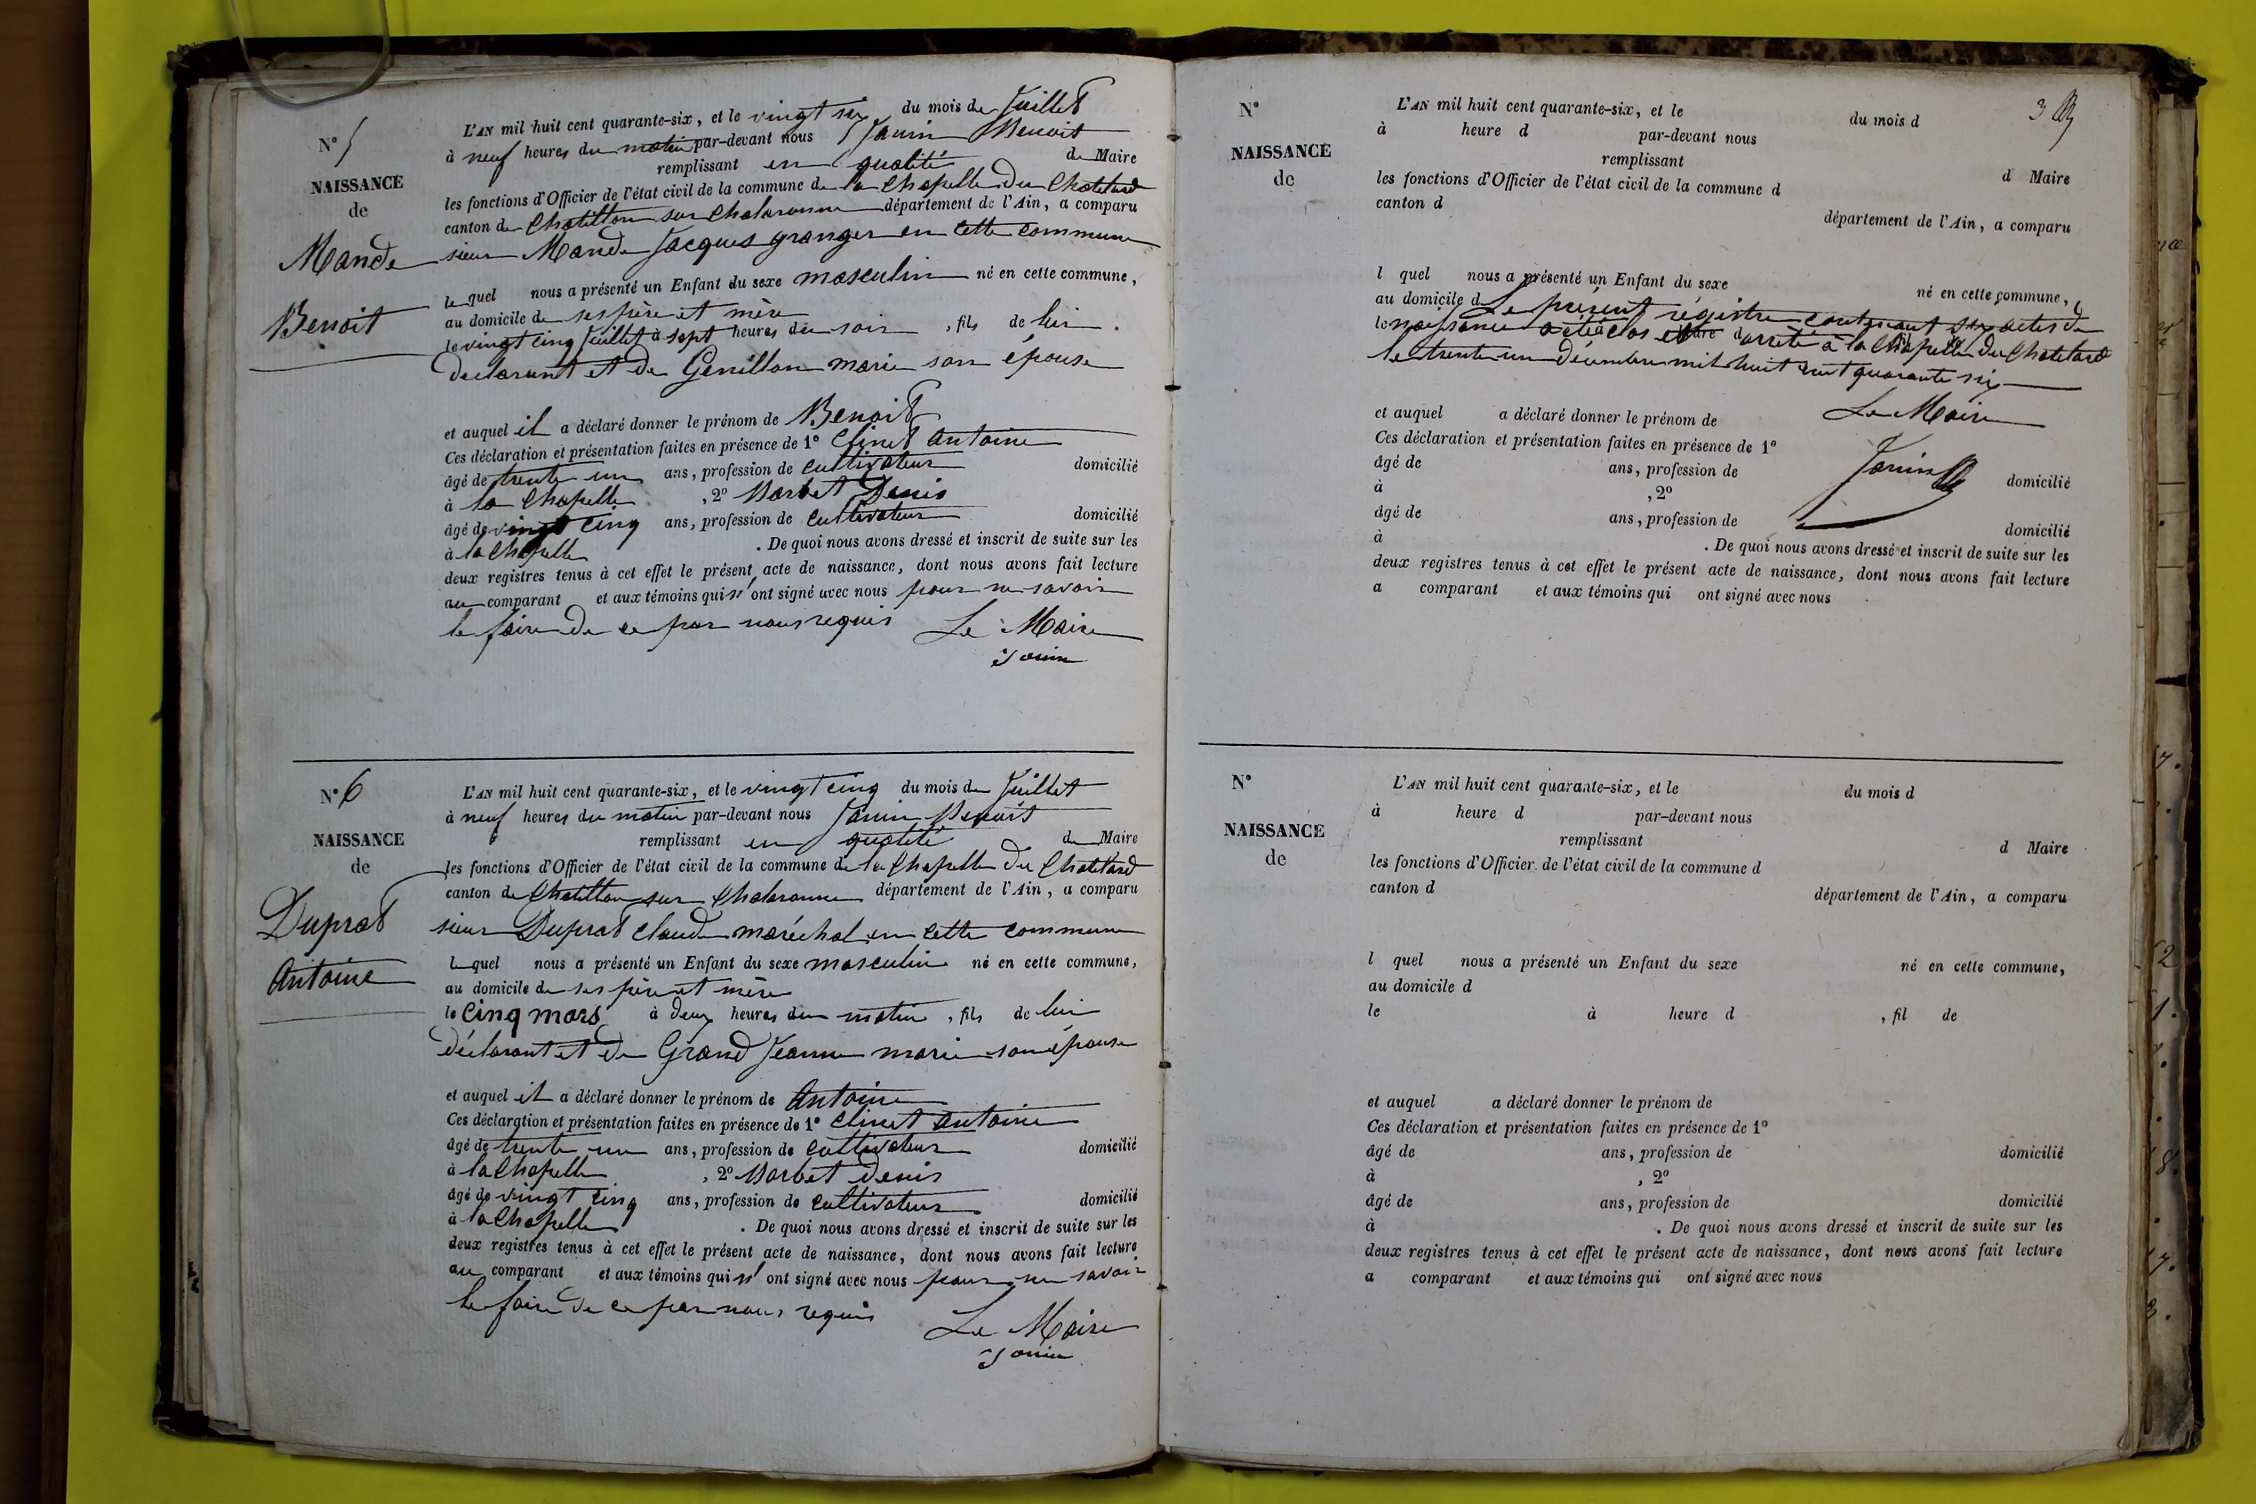 N° 5
NAISSANCE
de
Mande
Benoit
L'AN mil huit cent quarante-six, et le vingt six du mois de Juillet
à neuf heures du matin par-devant nous Janin Benoit
remplissant en qualité de Maire
les fonctions d'Officier de l'état civil de la commune de la Chapelle du Chatelard
canton de Chatillon sur Chalaronne département de l'Ain, a comparu
sieur Mande Jacques granger en cette commune
lequel nous a présenté un Enfant du sexe masculin né en cette commune,
au domicile de ses père et mère
le vingt cinq Juillet à sept heures du soir, fils de lui.
declarant et de Genillon marie son épouse
et auquel il a déclaré donner le prénom de Benoit
Ces déclaration et présentation faites en présence de 1° Clinet Antoine
âgé de trente un ans, profession de cultivateur domicilié
à la Chapelle, 2° Marbet Denis
âgé de vingt cinq ans, profession de cultivateur domicilié
à la Chapelle. De quoi nous avons dressé et inscrit de suite sur les
deux registres tenus à cet effet le présent acte de naissance, dont nous avons fait lecture
au comparant et aux témoins qui n'ont signé avec nous pour ne savoir
le faire de ce par nous requis Le Maire
Janin
N° 6
NAISSANCE
de
Duprat
Antoine
L'AN mil huit cent quarante-six, et le vingt cinq du mois de Juillet
à neuf heures du matin par-devant nous Janin Benoit
remplissant en qualité de Maire
les fonctions d'Officier de l'état civil de la commune de la Chapelle du Chatelard
canton de Chatillon sur Chalaronne département de l'Ain, a comparu
sieur Duprat Claude maréchal en cette commune
lequel nous a présenté un Enfant du sexe masculin né en cette commune,
au domicile de ses père et mère
le cinq mars à deux heures du matin, fils de lui
déclarant et de Grand Jeanne marie son épouse
et auquel il a déclaré donner le prénom de Antoine
Ces déclaration et présentation faites en présence de 1° Clinet Antoine
âgé de trente un ans, profession de cultivateur domicilié
à la Chapelle, 2° Marbet Denis
âgé de vingt cinq ans, profession de cultivateur domicilié
à la Chapelle. De quoi nous avons dressé et inscrit de suite sur les
deux registres tenus à cet effet le présent acte de naissance, dont nous avons fait lecture
au comparant et aux témoins qui n'ont signé avec nous pour ne savoir
le faire de ce par nous requis Le Maire
Janin
3
N°
NAISSANCE
de
L'AN mil huit cent quarante-six, et le du mois d
à heure d par-devant nous
remplissant d Maire
les fonctions d'Officier de l'état civil de la commune d
canton d département de l'Ain, a comparu
l quel nous a présenté un Enfant du sexe né en cette commune,
au domicile d Le présent régistre contenant six actes de
le naissance a été clos et arrêté à la Chapelle du Chatelard
le trente un Décembre mil huit cent quarante six
Le Maire
et auquel a déclaré donner le prénom de
Ces déclaration et présentation faites en présence de 1°
âgé de ans, profession de domicilié
Janin
à , 2°
âgé de ans, profession de domicilié
à . De quoi nous avons dressé et inscrit de suite sur les
deux registres tenus à cet effet le présent acte de naissance, dont nous avons fait lecture
a comparant et aux témoins qui ont signé avec nous
N°
NAISSANCE
de
L'AN mil huit cent quarante-six, et le du mois d
à heure d par-devant nous
remplissant d Maire
les fonctions d'Officier de l'état civil de la commune d
canton d département de l'Ain, a comparu
l quel nous a présenté un Enfant du sexe né en cette commune,
au domicile d
le à heure d , fil de
et auquel a déclaré donner le prénom de
Ces déclaration et présentation faites en présence de 1°
âgé de ans, profession de domicilié
à , 2°
âgé de ans, profession de domicilié
à . De quoi nous avons dressé et inscrit de suite sur les
deux registres tenus à cet effet le présent acte de naissance, dont nous avons fait lecture
a comparant et aux témoins qui ont signé avec nous